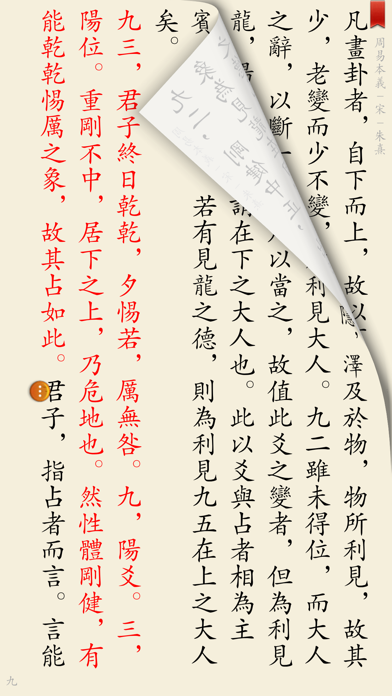 周易本義－宋－朱熹
凡畫卦者，自下而上，故以
隱，澤及於物，物所利見，故其
少，老變而少不變，
利見大人。九二雖未得位，而大人
之辭，以斷一
以當之，故值此爻之變者，但為利見
龍，
謂在下之大人也。此以爻與占者相為主
賓
若有見龍之德，則為利見九五在上之大人
矣。
九三，君子終日乾乾，夕惕若，厲無咎。九，陽爻。三，
陽位。重剛不中，居下之上，乃危地也。然性體剛健，有
能乾乾惕厲之象，故其占如此。君子，指占者而言。言能
九